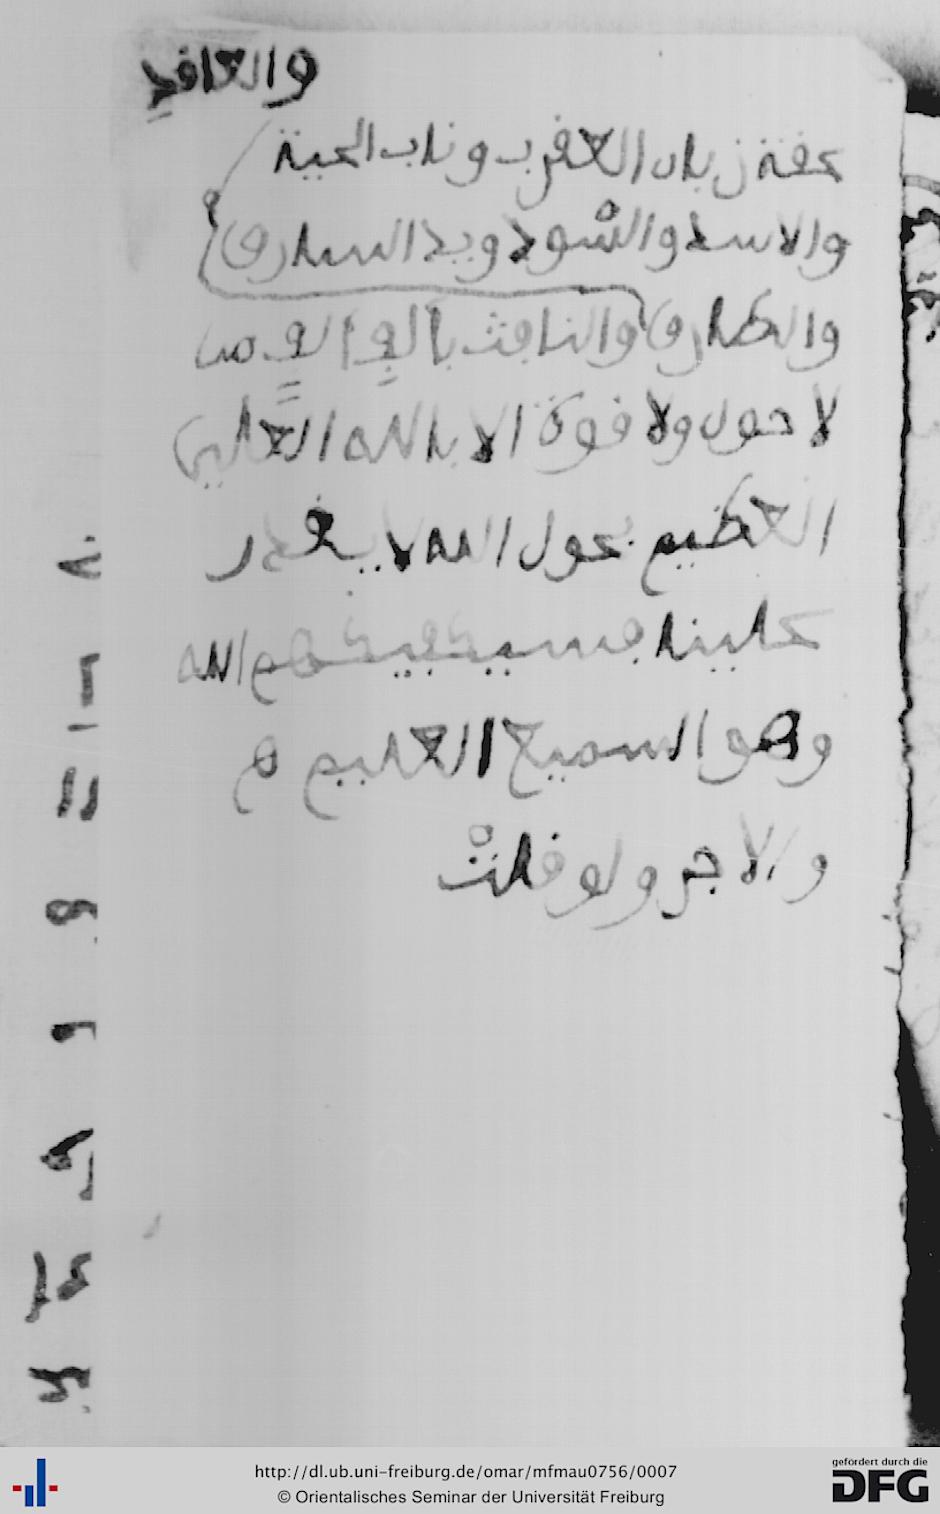 والعافية
عقدة زبان العقرب وناب الحية
والاسد والسّود ويد السارق
والطارق والنافث بالف الف من
لا حول ولا قوة الا بالله العلي
العظيم بحول الله لا يقدر
علينا فسيكفيكهم الله
وهو السميع العليم هـ
والاجر ولو قلت
http://dl.ub.uni-freiburg.de/omar/mfmau0756/0007
© Orientalisches Seminar der Universität Freiburg
gefördert durch die
DFG